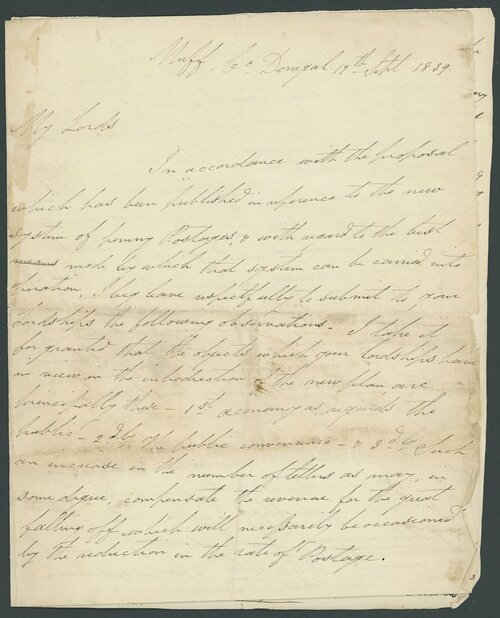 Muff, Co Donegal 17th Sept 1839
My Lords
In accordance with the proposal
which has been published in reference to the new
system of penny Postages, & with regard to the best
means mode by which that system can be carried into
operation, I beg leave respectfully to submit to your
Lordships the following observations - I take it
for granted that the objects which your Lordships have
in view in the introduction of the new plan, are
principally these - 1st oeconomy as regards the
public - 2dly, the public convenience - & 3dly Such
an increase in the number of letters as may, in
some degree, compensate the revenue for the great
falling off which will necessarily be occasioned
by the reduction in the rate of Postage.